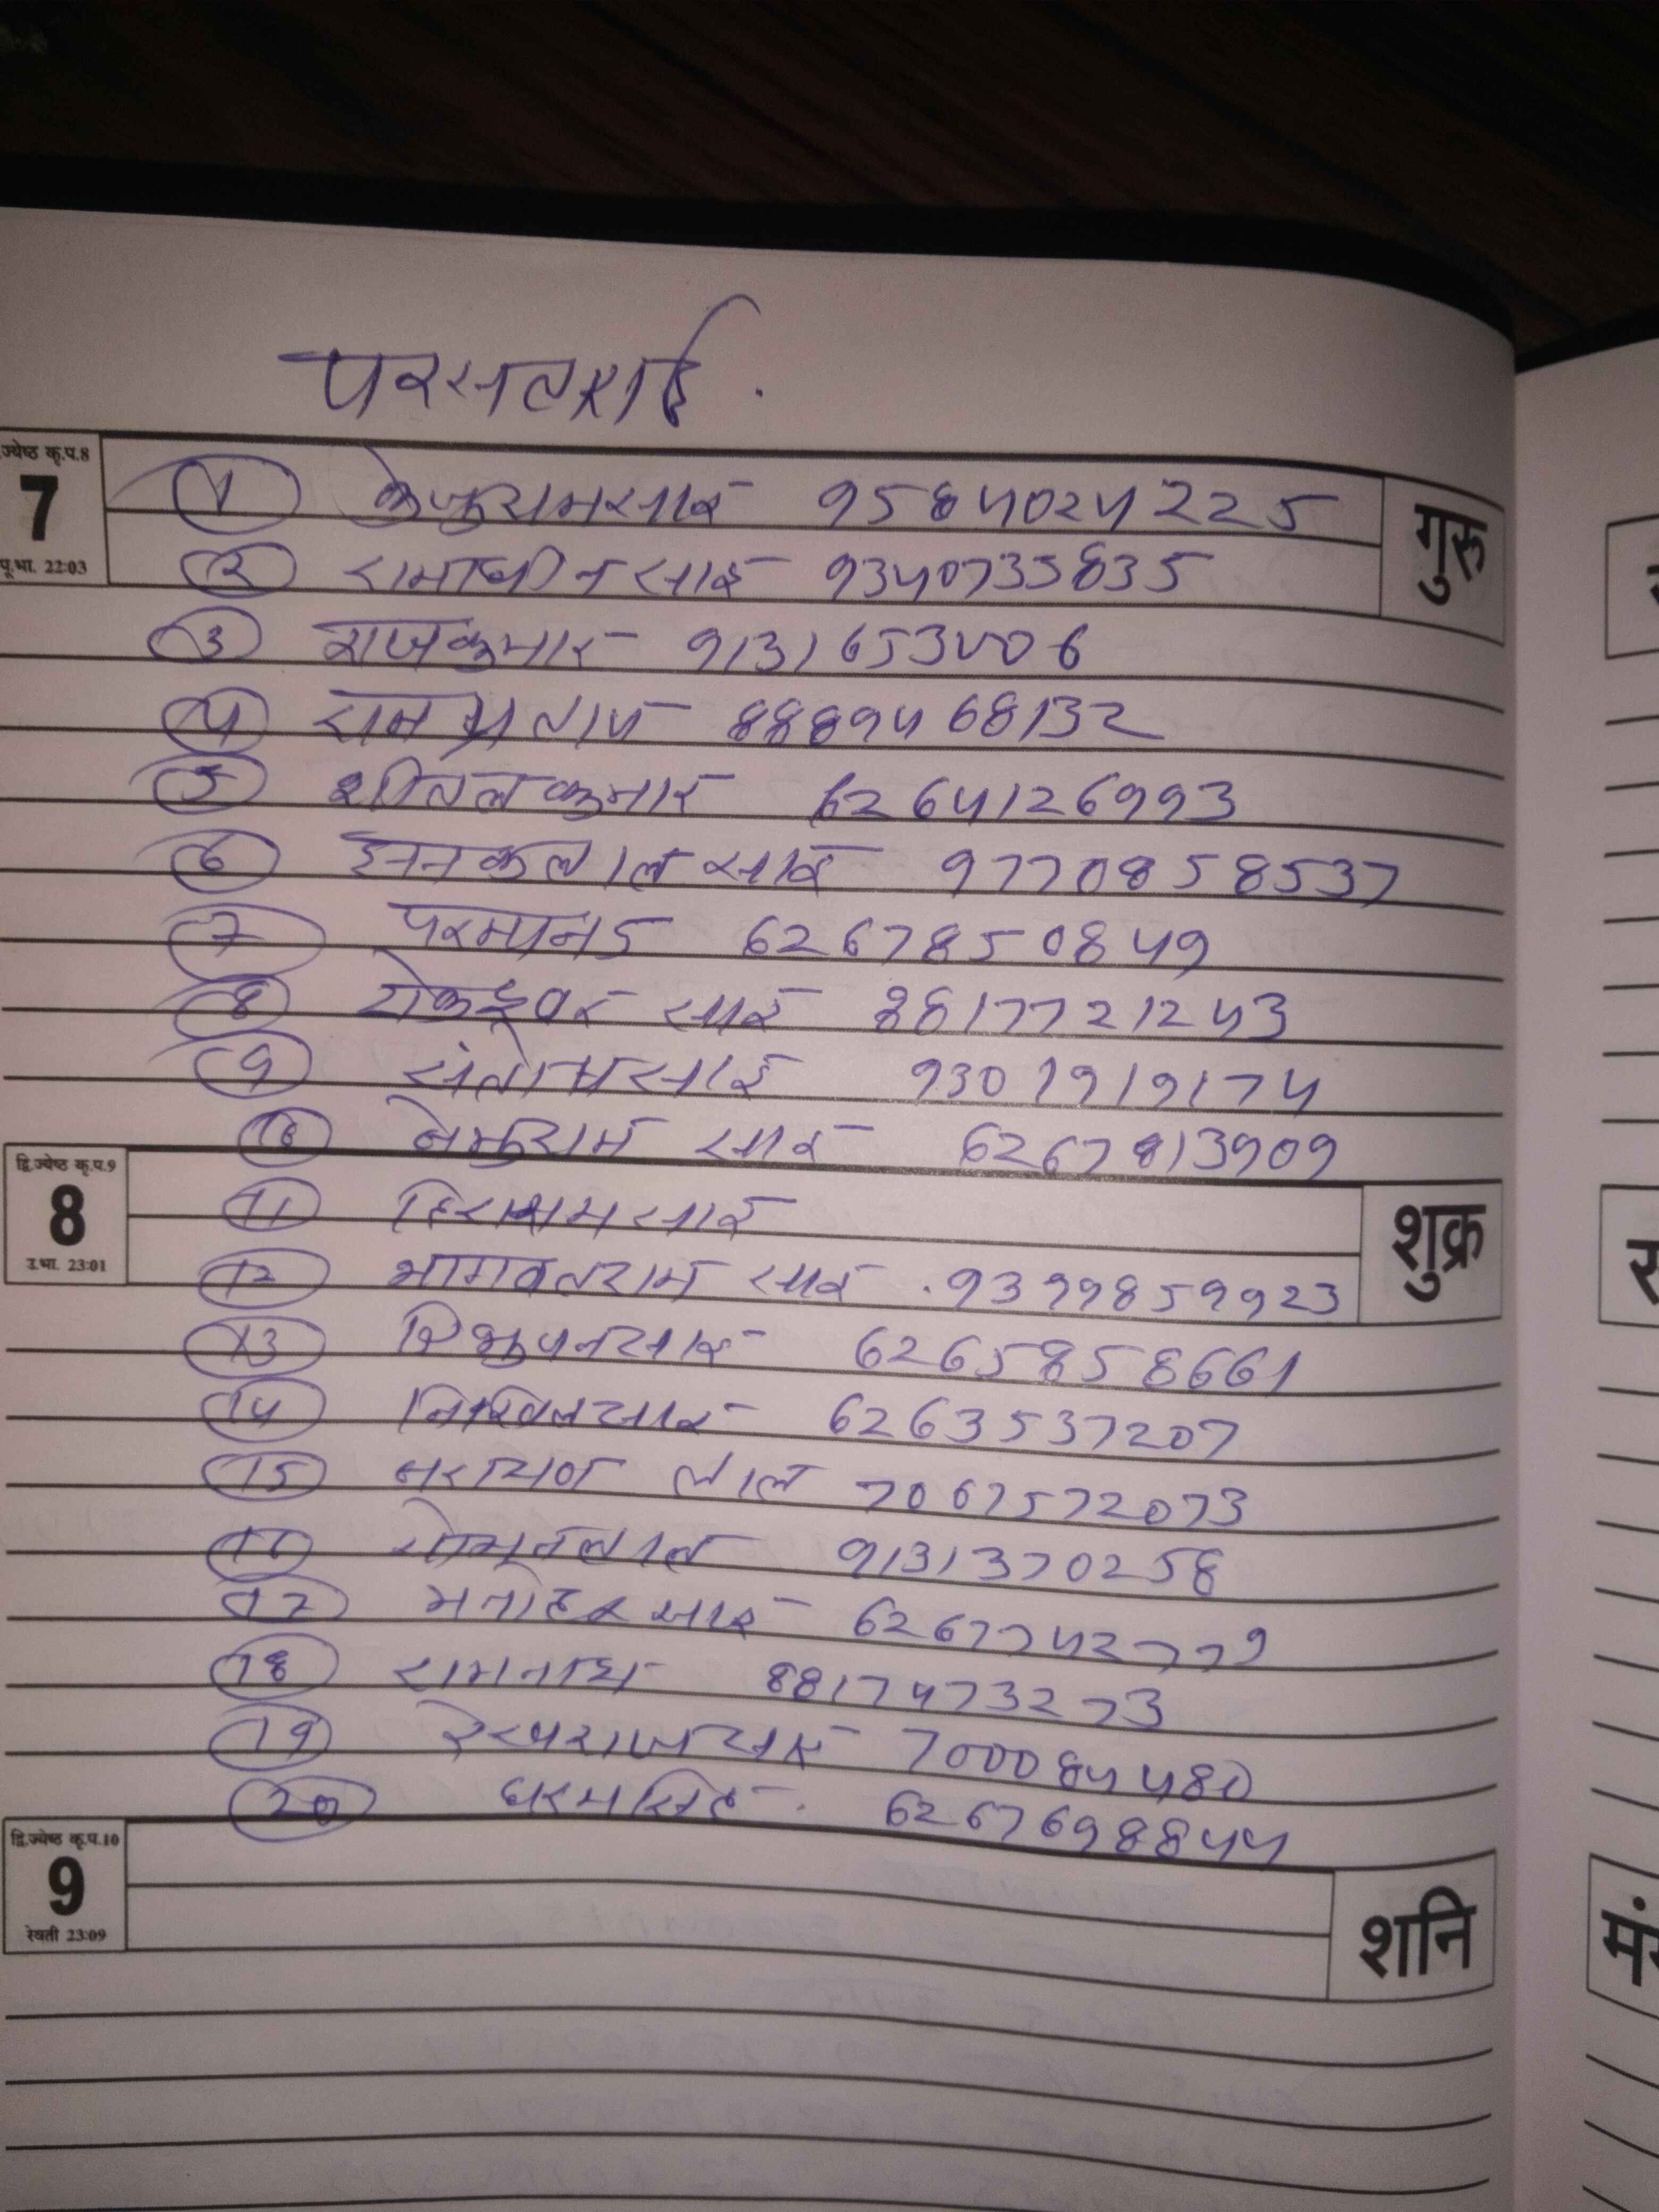 ज्येष्ठ कृ.प.8
7
पू.भा. 22:03
गुरु
1 केजुरामसाई 9584024225
2 रामाधीन साई 9340735835
3 राजकुमार 9131653406
4 रामप्रताप 8889468132
5 शीतलकुमार 6264126993
6 झनकलाल साई 9770858537
7 परमानंद 6267850849
8 टोकेश्वर साई 8817721243
9 संतोषसाई 9301919174
10 नेमुराम साई 6267813909
द्वि.ज्येष्ठ कृ.प.9
8
उ.भा. 23:01
शुक्र
11 हिरारामसाई
12 भागवतराम साई 9399859923
13 6265858661
14 निखिलसाई 6263537207
15 नारायण लाल 7067572073
16 सोमनलाल 9131370258
17 मनोहर साई 6267742779
18 रामनाथ 8817473273
19 7000844480
20 धरमसिंह 6267698844
द्वि.ज्येष्ठ कृ.प.10
9
रेवती 23:09
शनि